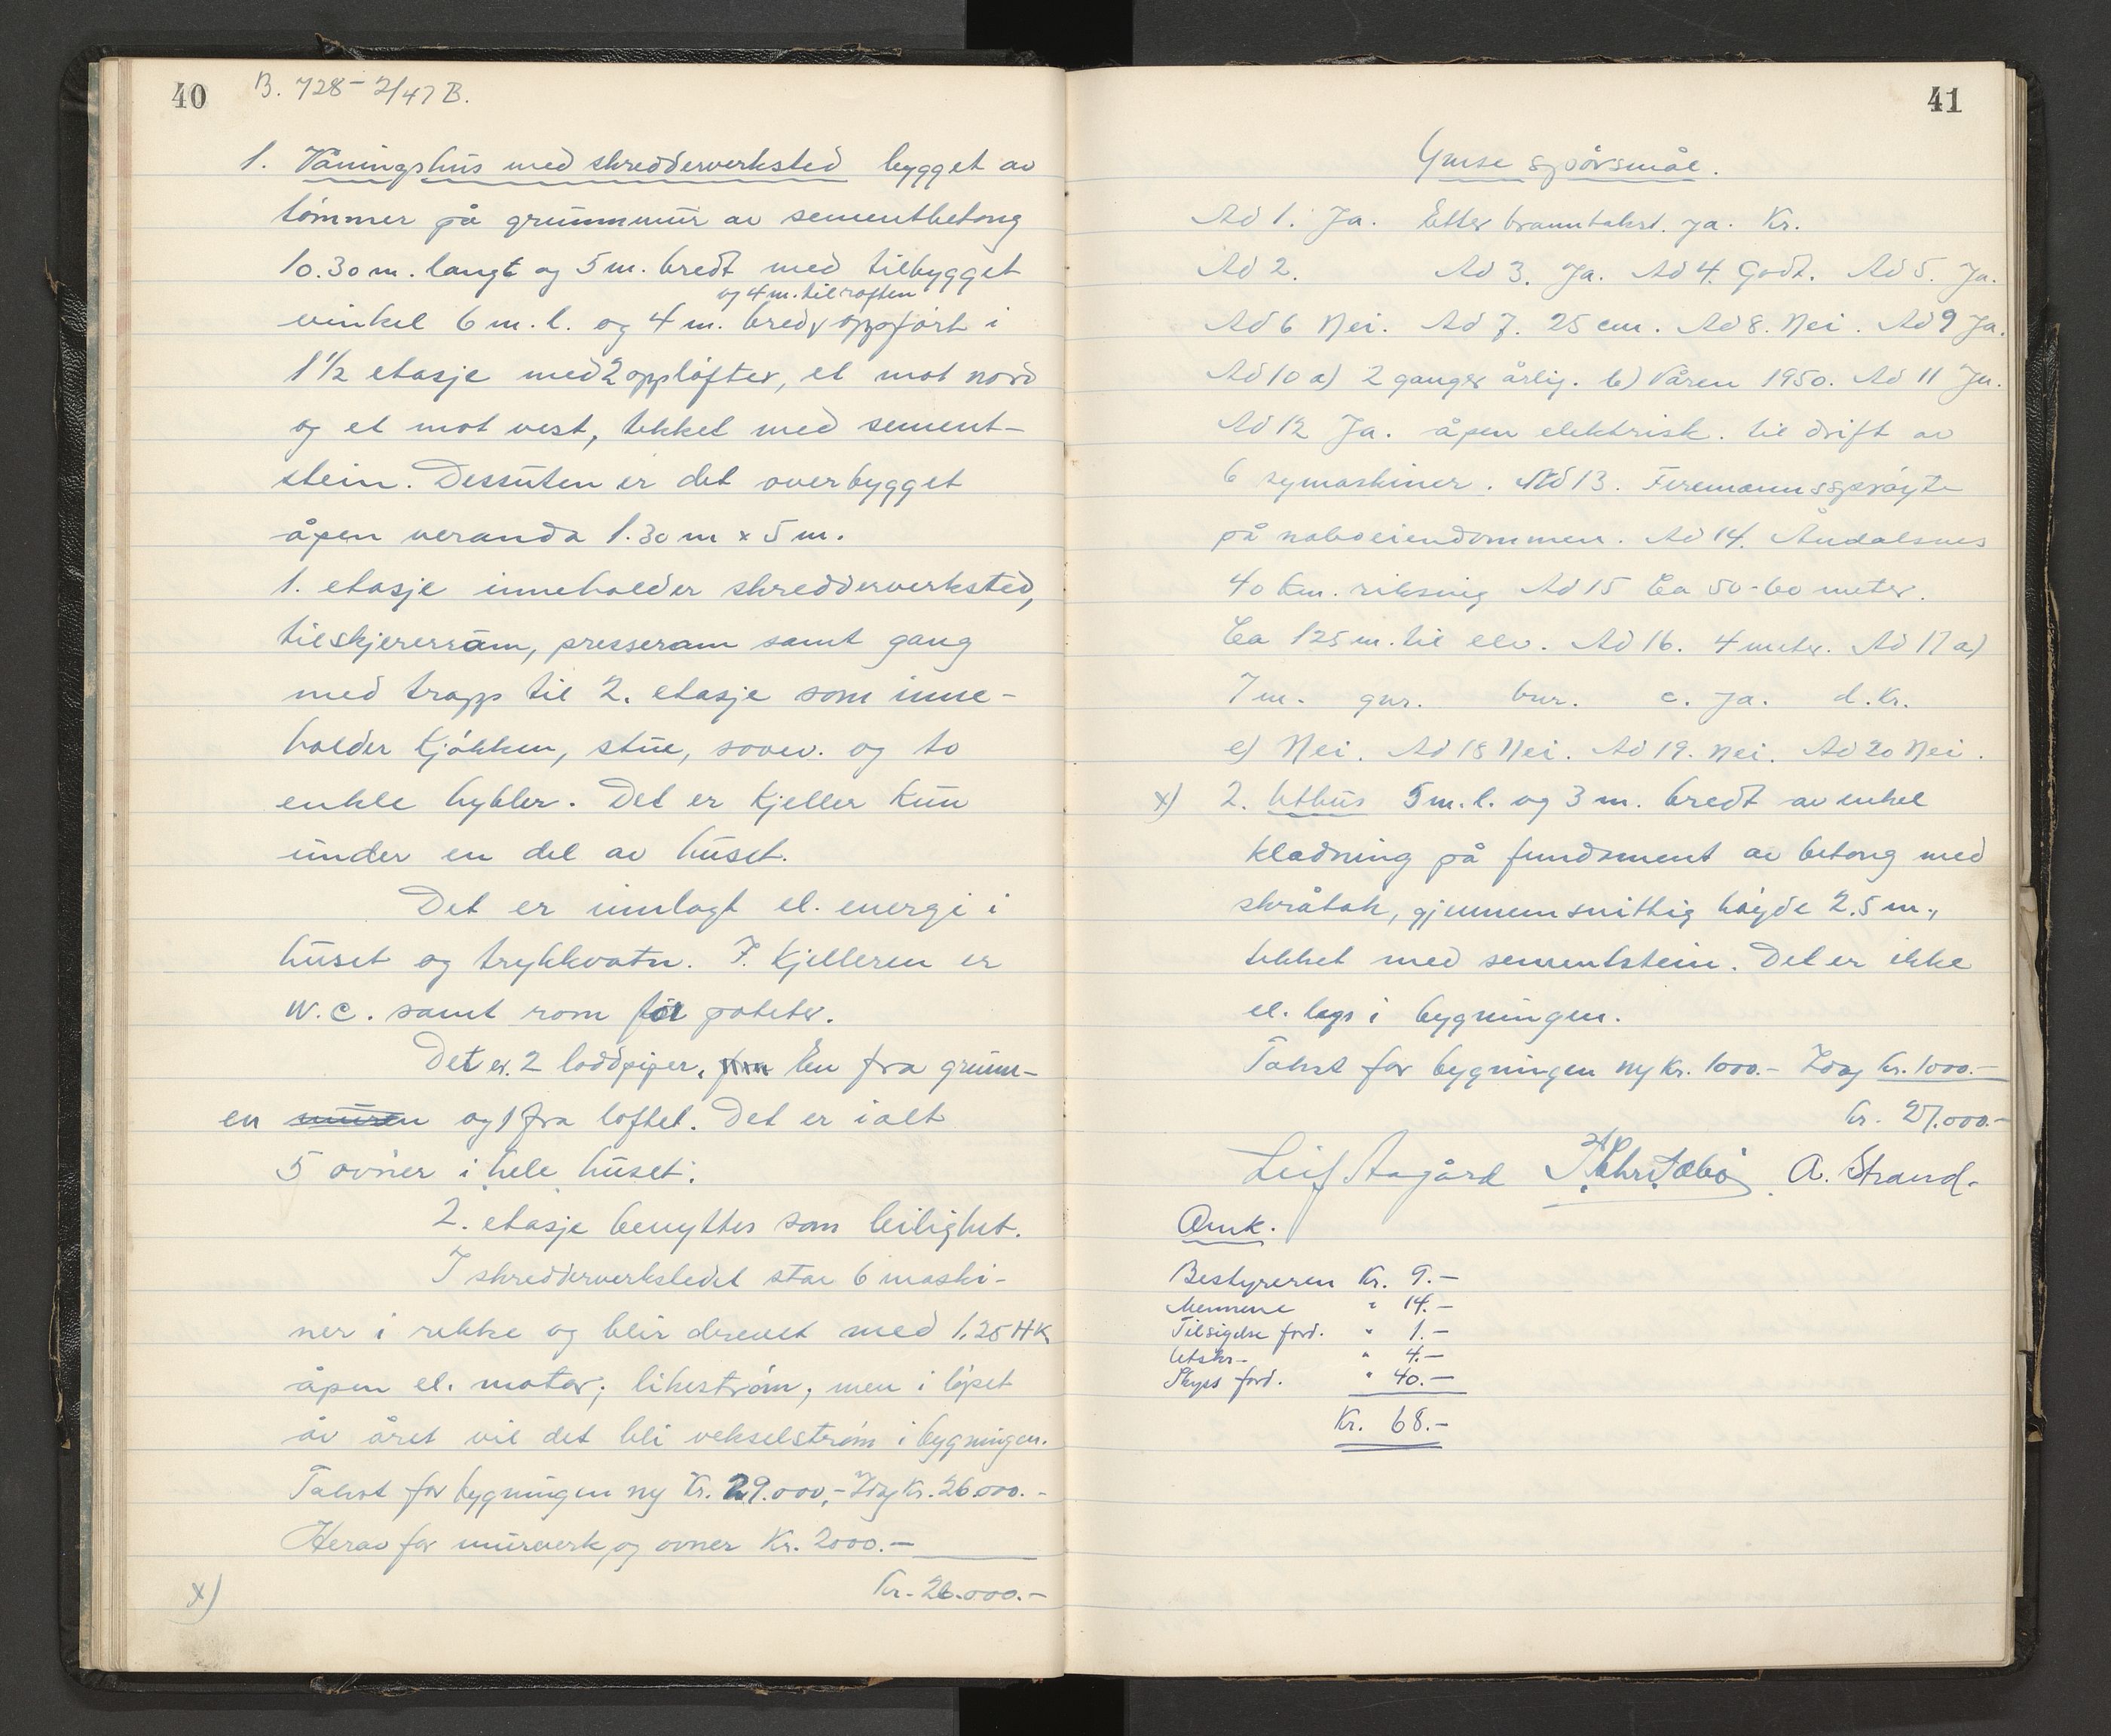 40
B. 728 - 2/47 B.
1. Våningshus med skredderverksted bygget av
tømmer på grunnmur av sementbetong
10.30 m. langt og 5 m. bredt med tilbygget
og 4 m. til raften
vinkel 6 m. l. og 4 m. bred v oppført i
1 1/2 etasje med 2 oppløfter, et mot nord
og et mot vest, tekket med sement-
stein. Dessuten er det overbygget
åpen veranda 1.30 m x 5 m.
1. etasje inneholder skredderverksted,
tilskjererrom, presserom samt gang
med trapp til 2. etasje som inne-
holder kjøkken, stue, sovev. og to
enkle hybler. Det er kjeller kun
under en del av huset.
Det er innlagt el. energi i
huset og trykkvatn. I kjelleren er
W.C. samt rom for poteter.
Det er 2 loddpiper, En fra grunn-
en muren og 1 fra loftet. Det er ialt
5 ovner i hele huset.
2. etasje benyttes som leilighet.
I skredderverkstedet står 6 maski-
ner i rekke og blir drevet med 1.25 HK
åpen el. motor; likestrøm, men i løpet
av året vil det bli vekselstrøm i bygningen.
Takst for bygningen ny Kr. 29.000,- Idag Kr. 26.000.-
Herav for murverk og ovner Kr. 2000.-
Kr. 26.000.-
x)
41
Ymse spørsmål.
Ad 1. Ja. Etter branntakst. Ja. Kr.
Ad 2. Ad 3. Ja. Ad 4. Godt. Ad 5. Ja.
Ad 6 Nei. Ad 7. 25 cm. Ad 8. Nei. Ad 9 Ja.
Ad 10 a) 2 ganger årlig. b) Våren 1950. Ad 11 Ja.
Ad 12 Ja. åpen elektrisk. til drift av
6 symaskiner. Ad 13. Firemannssprøyte
på naboeiendommen. Ad 14. Åndalsnes
40 km. riksveg Ad 15 Ca 50-60 meter.
Ca 125 m. til elv. Ad 16. 4 meter. Ad 17 a)
7 m. gnr. bnr. c. Ja. d. Kr.
e) Nei. Ad 18 Nei. Ad 19. Nei. Ad 20 Nei.
x) 2. Uthus 5 m. l. og 3 m. bredt av enkel
kledning på fundament av betong med
skråtak, gjennemsnittlig høyde 2.5 m.,
tekket med sementstein. Det er ikke
el. lys i bygningen.
Takst for bygningen ny Kr. 1000.- Idag Kr. 1000.-
Kr. 27.000.-
Leif Aagård A. Strand.
Omk.
Bestyreren Kr. 9.-
Mennene " 14.-
Tilsigelse ford. " 1.-
Utskr- " 4.-
Skyss ford. " 40.-
Kr. 68.-